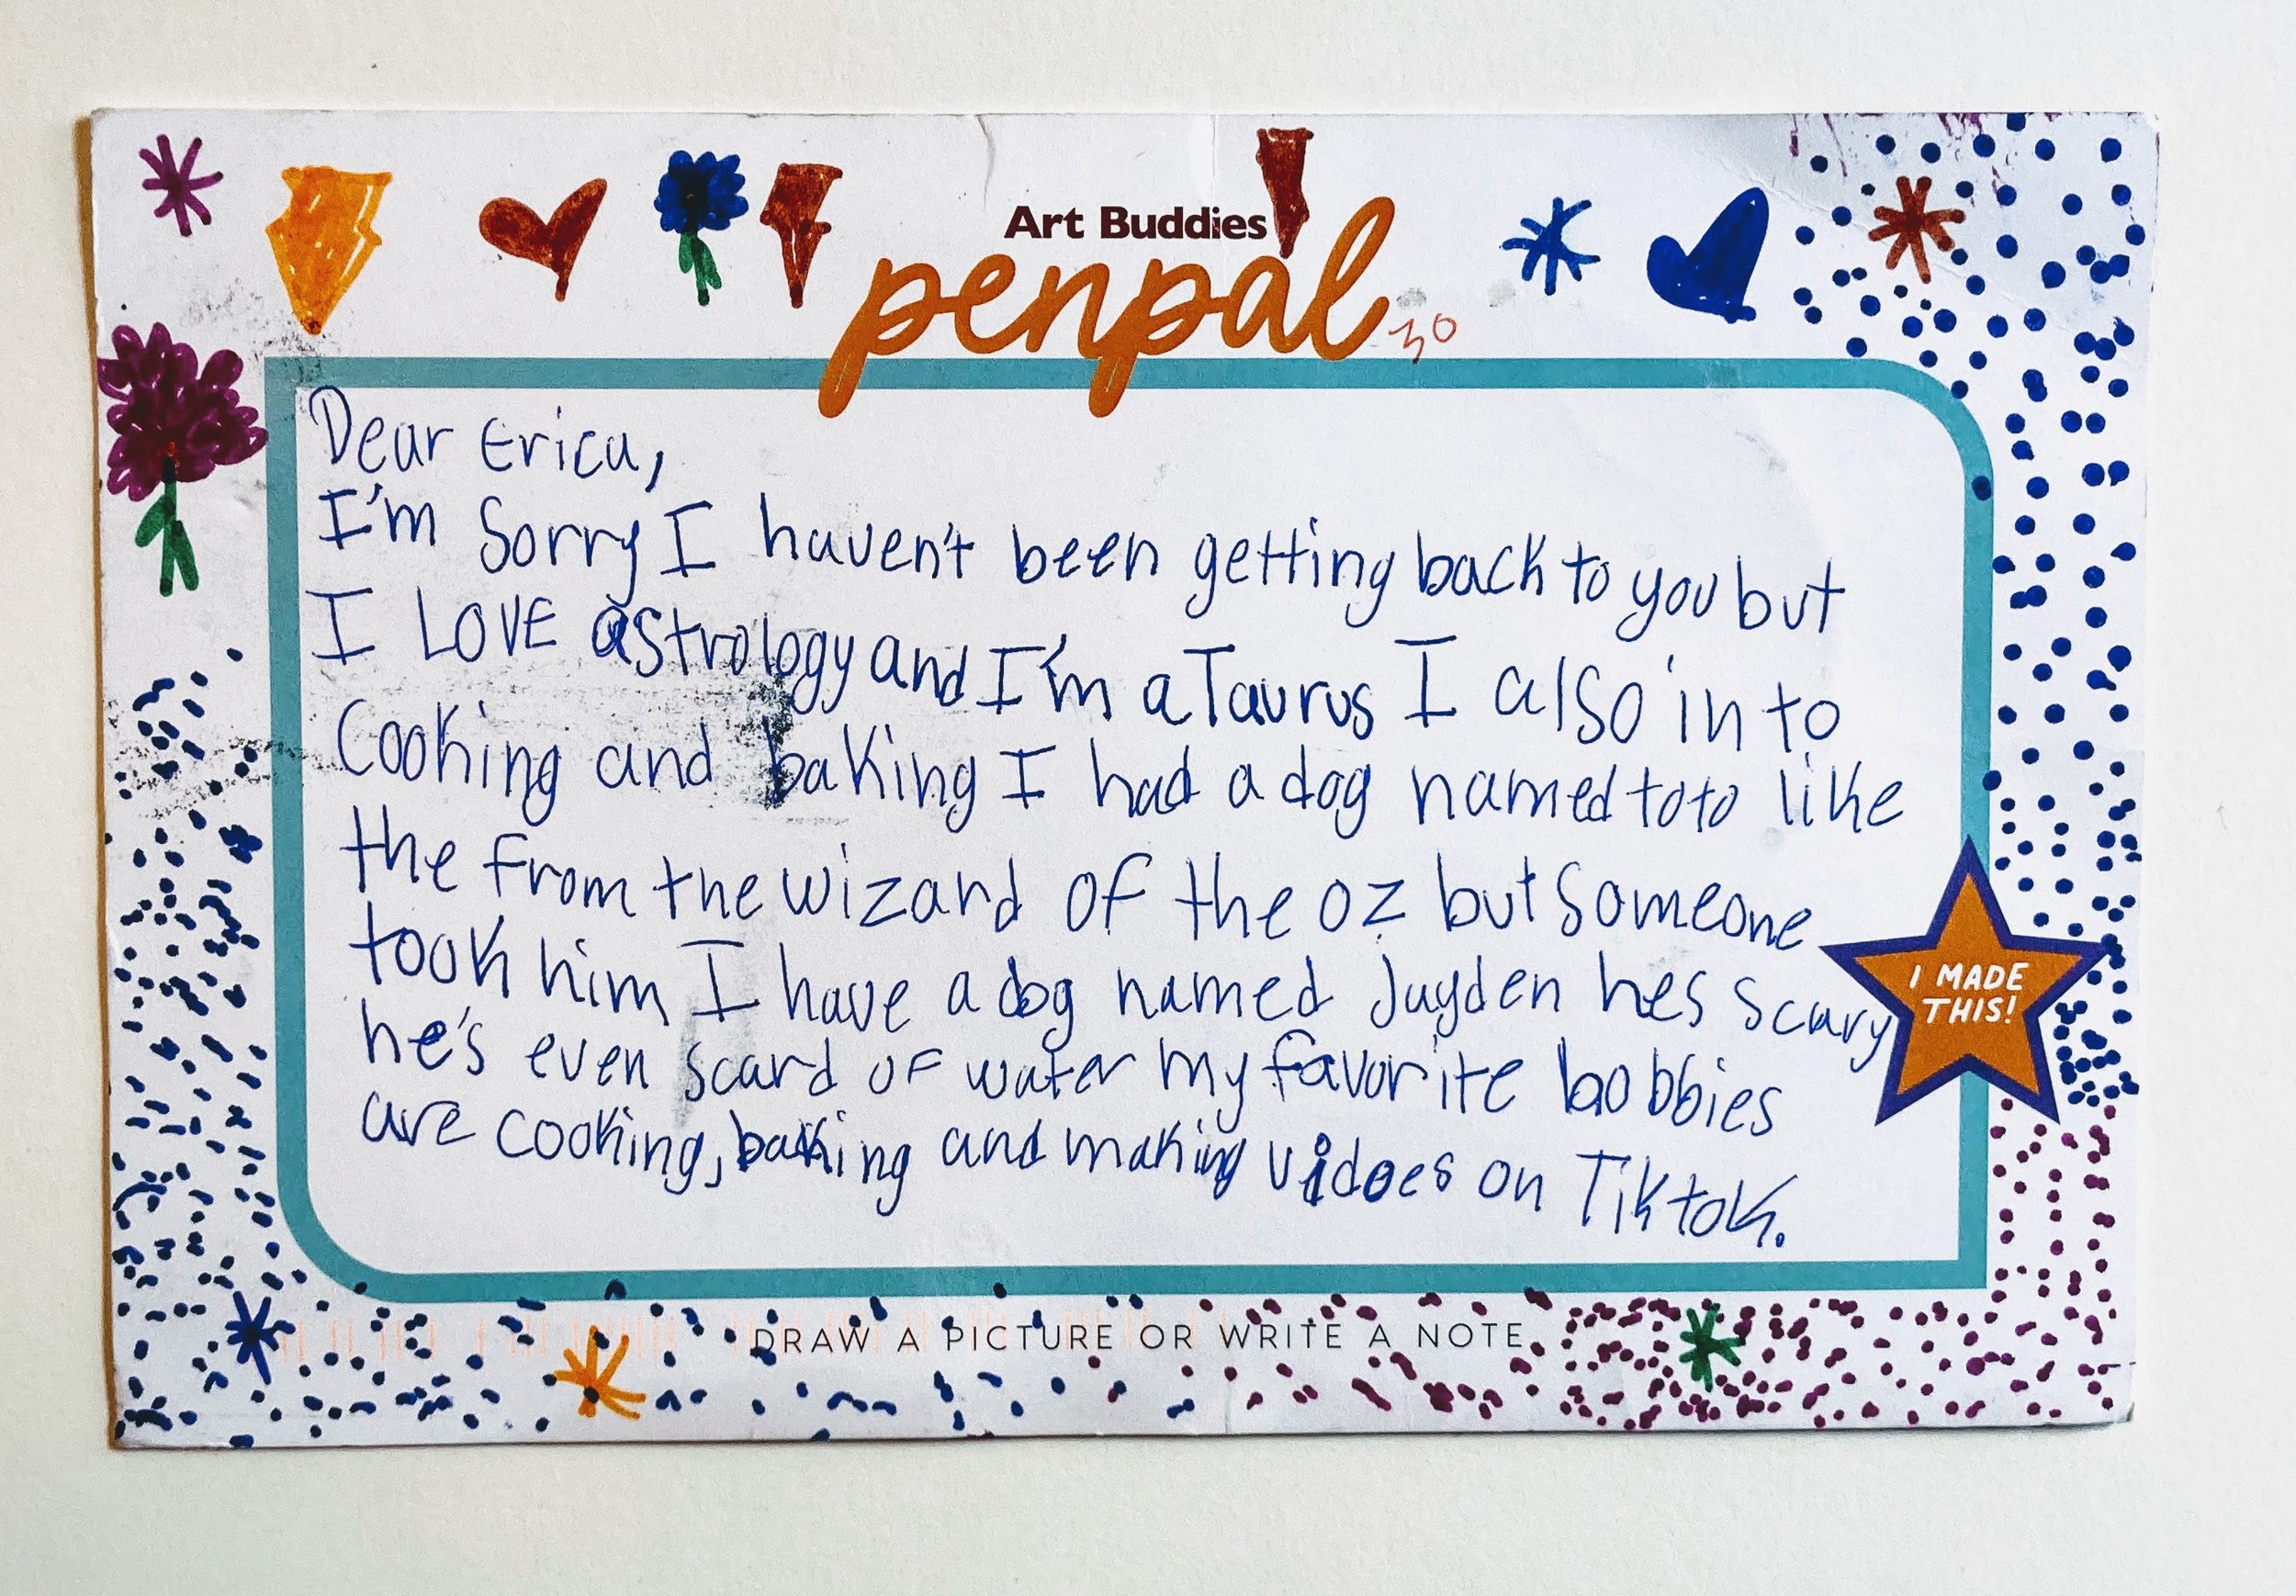 Art Buddies
penpal
30
Dear Erica,
I'm Sorry I haven't been getting back to you but
I LOVE astrology and I'm a Taurus I also in to
Cooking and baking I had a dog named toto like
the from the wizard of the oz but Someone
took him I have a dog named Jayden hes scary
he's even scard of water my favorite bobbies
are cooking, baking and making vidoes on Tiktok.
I MADE
THIS!
DRAW A PICTURE OR WRITE A NOTE